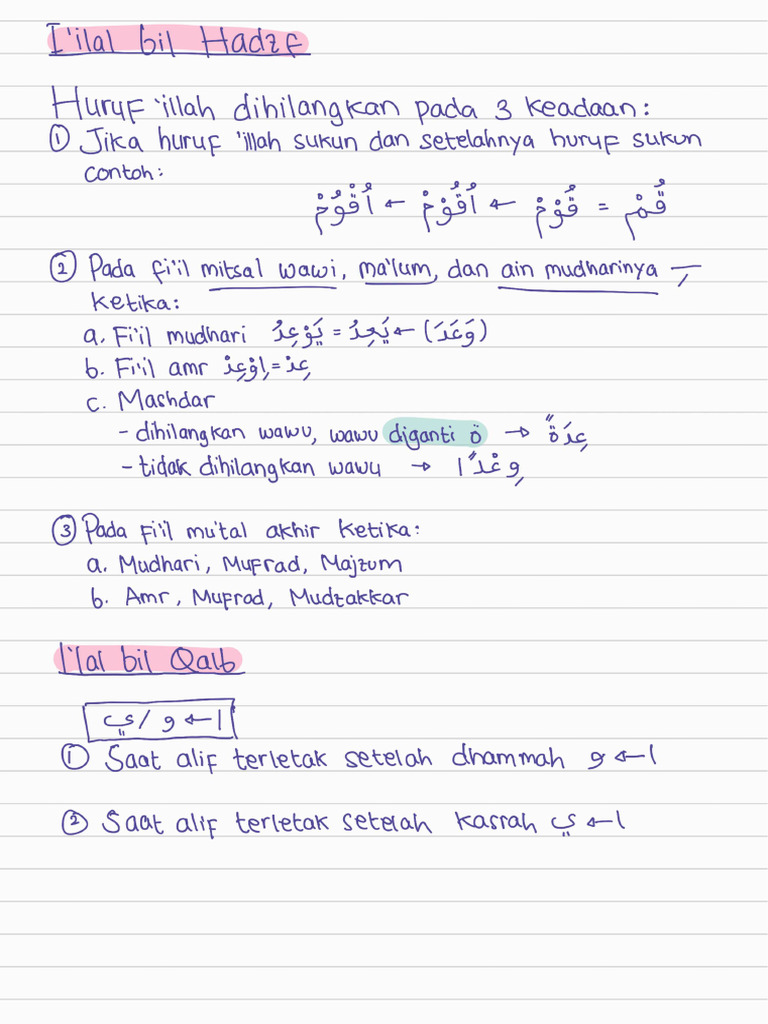 I'ilal bil Hadzf
Huruf 'illah dihilangkan pada 3 keadaan:
① Jika huruf 'illah sukun dan setelahnya huruf sukun
contoh:
قُمْ = قُوْمْ ← اُقُوْمْ ← اُقْوُمْ
② Pada fi'il mitsal wawi, ma'lum, dan ain mudharinya ـِ
ketika:
a. Fi'il mudhari (وَعَدَ) ← يَعِدُ = يَوْعِدُ
b. Fi'il amr عِدْ = اِوْعِدْ
c. Mashdar
- dihilangkan wawu, wawu diganti ة → عِدَةً
- tidak dihilangkan wawu → وِعْدًا
③ Pada fi'il mu'tal akhir ketika:
a. Mudhari, Mufrad, Majzum
b. Amr, Mufrod, Mudzakkar
I'lal bil Qalb
ا ← و / ي
① Saat alif terletak setelah dhammah ا ← و
② Saat alif terletak setelah kasrah ا ← ي